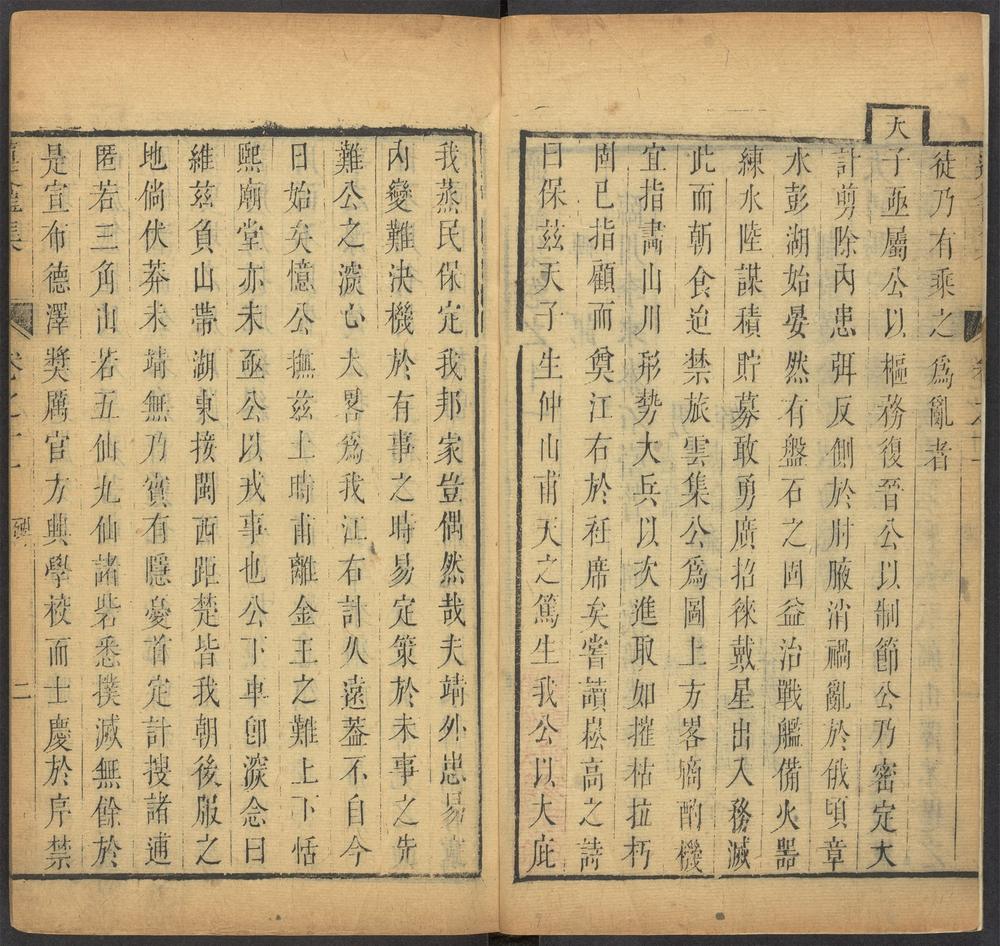 徒乃有乘之爲亂者
天子亟屬公以樞務復晉公以制節公乃密定大
計剪除內患弭反側於肘腋消禍亂於俄頃章
水彭湖始晏然有盤石之固益治戰艦備火器
練水陸謀積貯募敢勇廣招徠戴星出入務滅
此而朝食迨禁旅雲集公爲圖上方畧酌機
宜指畵山川形勢大兵以次進取如摧枯拉朽
固已指顧而奠江右於衽席矣嘗讀崧高之詩
曰保茲天子生仲山甫天之篤生我公以大庇
我蒸民保定我邦家豈偶然哉夫靖外患易
內變難決機於有事之時易定策於未事之先
難公之深心大畧爲我江右計久遠蓋不自今
日始矣憶公撫茲土時甫離金王之難上下恬
熙廟堂亦未亟公以戎事也公下車卽深念曰
維茲負山帶湖東接閩西距楚皆我朝後服之
地倘伏莽未靖無乃實有隱憂首定計搜諸逋
匿若三角山若五仙九仙諸砦悉撲滅無餘於
是宣布德澤奬厲官方興學校而士慶於序禁
集 卷之 碑 二